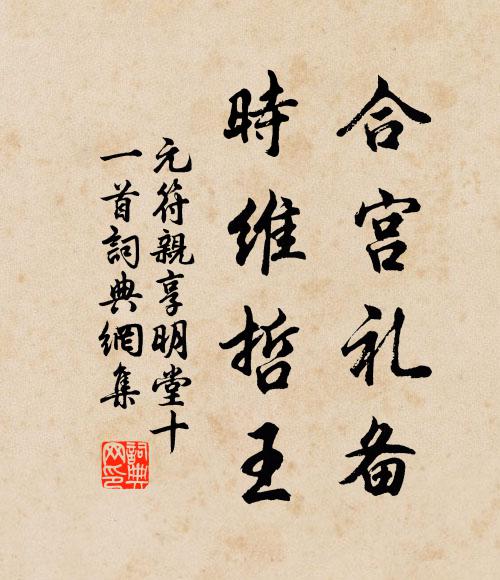 合宫礼备
時維哲王
元符親享明堂十
一首詞典網集
詞典
网印